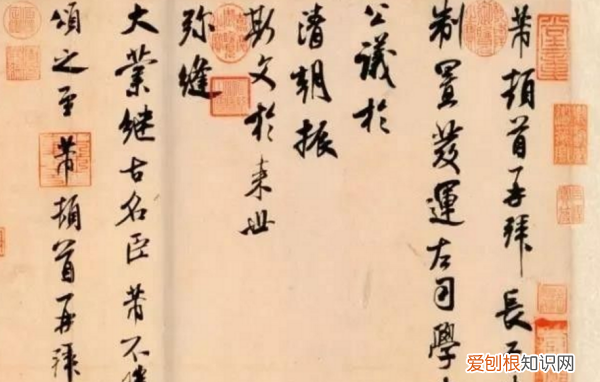 芾頓首再拜長
制置發運左司學
公議於
清朝振
斯文於来世
弥縫
大業継古名臣芾不
頌之至芾頓首再拜
爱刨根知识网